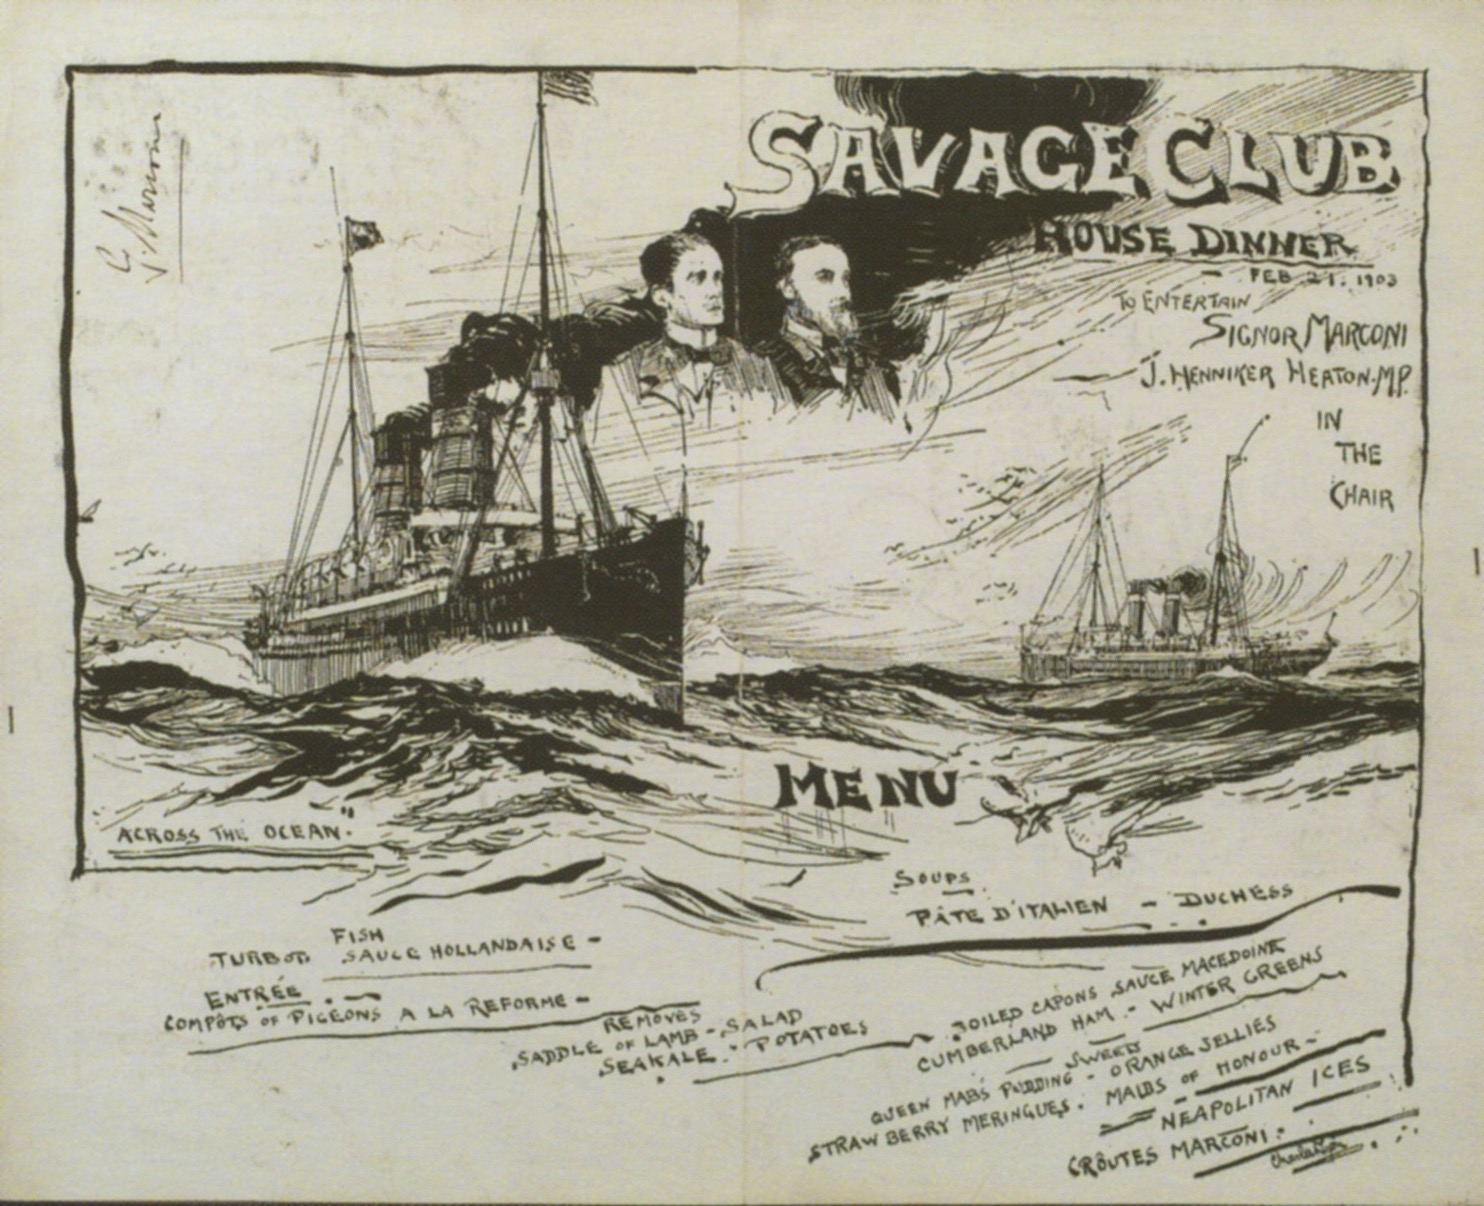 G. Marconi
SAVAGE CLUB
HOUSE DINNER
FEB 21. 1903
TO ENTERTAIN
SIGNOR MARCONI
J. HENNIKER HEATON. M.P.
IN
THE
CHAIR
"ACROSS THE OCEAN."
MENU
SOUPS
PÂTE D'ITALIEN - DUCHESS
FISH
TURBOT SAUCE HOLLANDAISE -
ENTRÉE
COMPÔTS OF PIGEONS A LA REFORME -
REMOVES
SADDLE OF LAMB - SALAD
SEAKALE - POTATOES
BOILED CAPONS SAUCE MACEDOINE
CUMBERLAND HAM - WINTER GREENS
SWEETS
QUEEN MABS PUDDING - ORANGE JELLIES
STRAWBERRY MERINGUES. MAIDS OF HONOUR -
NEAPOLITAN ICES
CRÔUTES MARCONI.